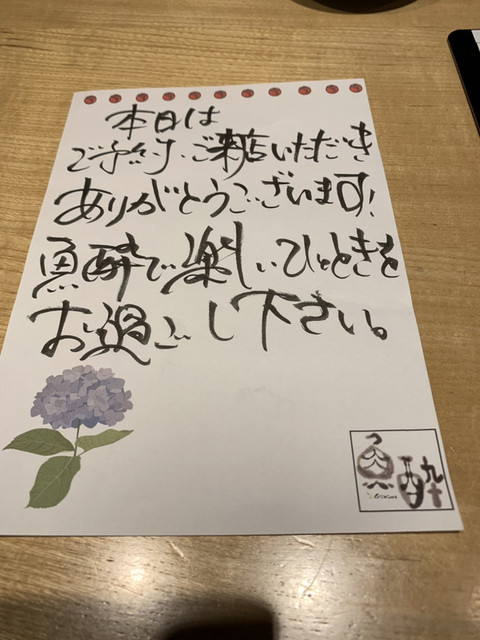 本日は
ご予約、ご来店いただき
ありがとうございます!
魚酔で楽しいひとときを
お過ごし下さい。
魚酔